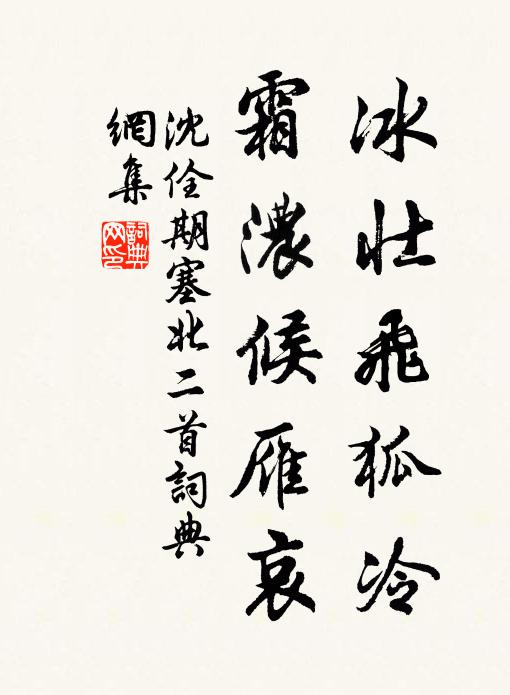 冰壮飛狐冷
霜濃候雁哀
沈佺期塞北二首詞典
網集
詞典网印